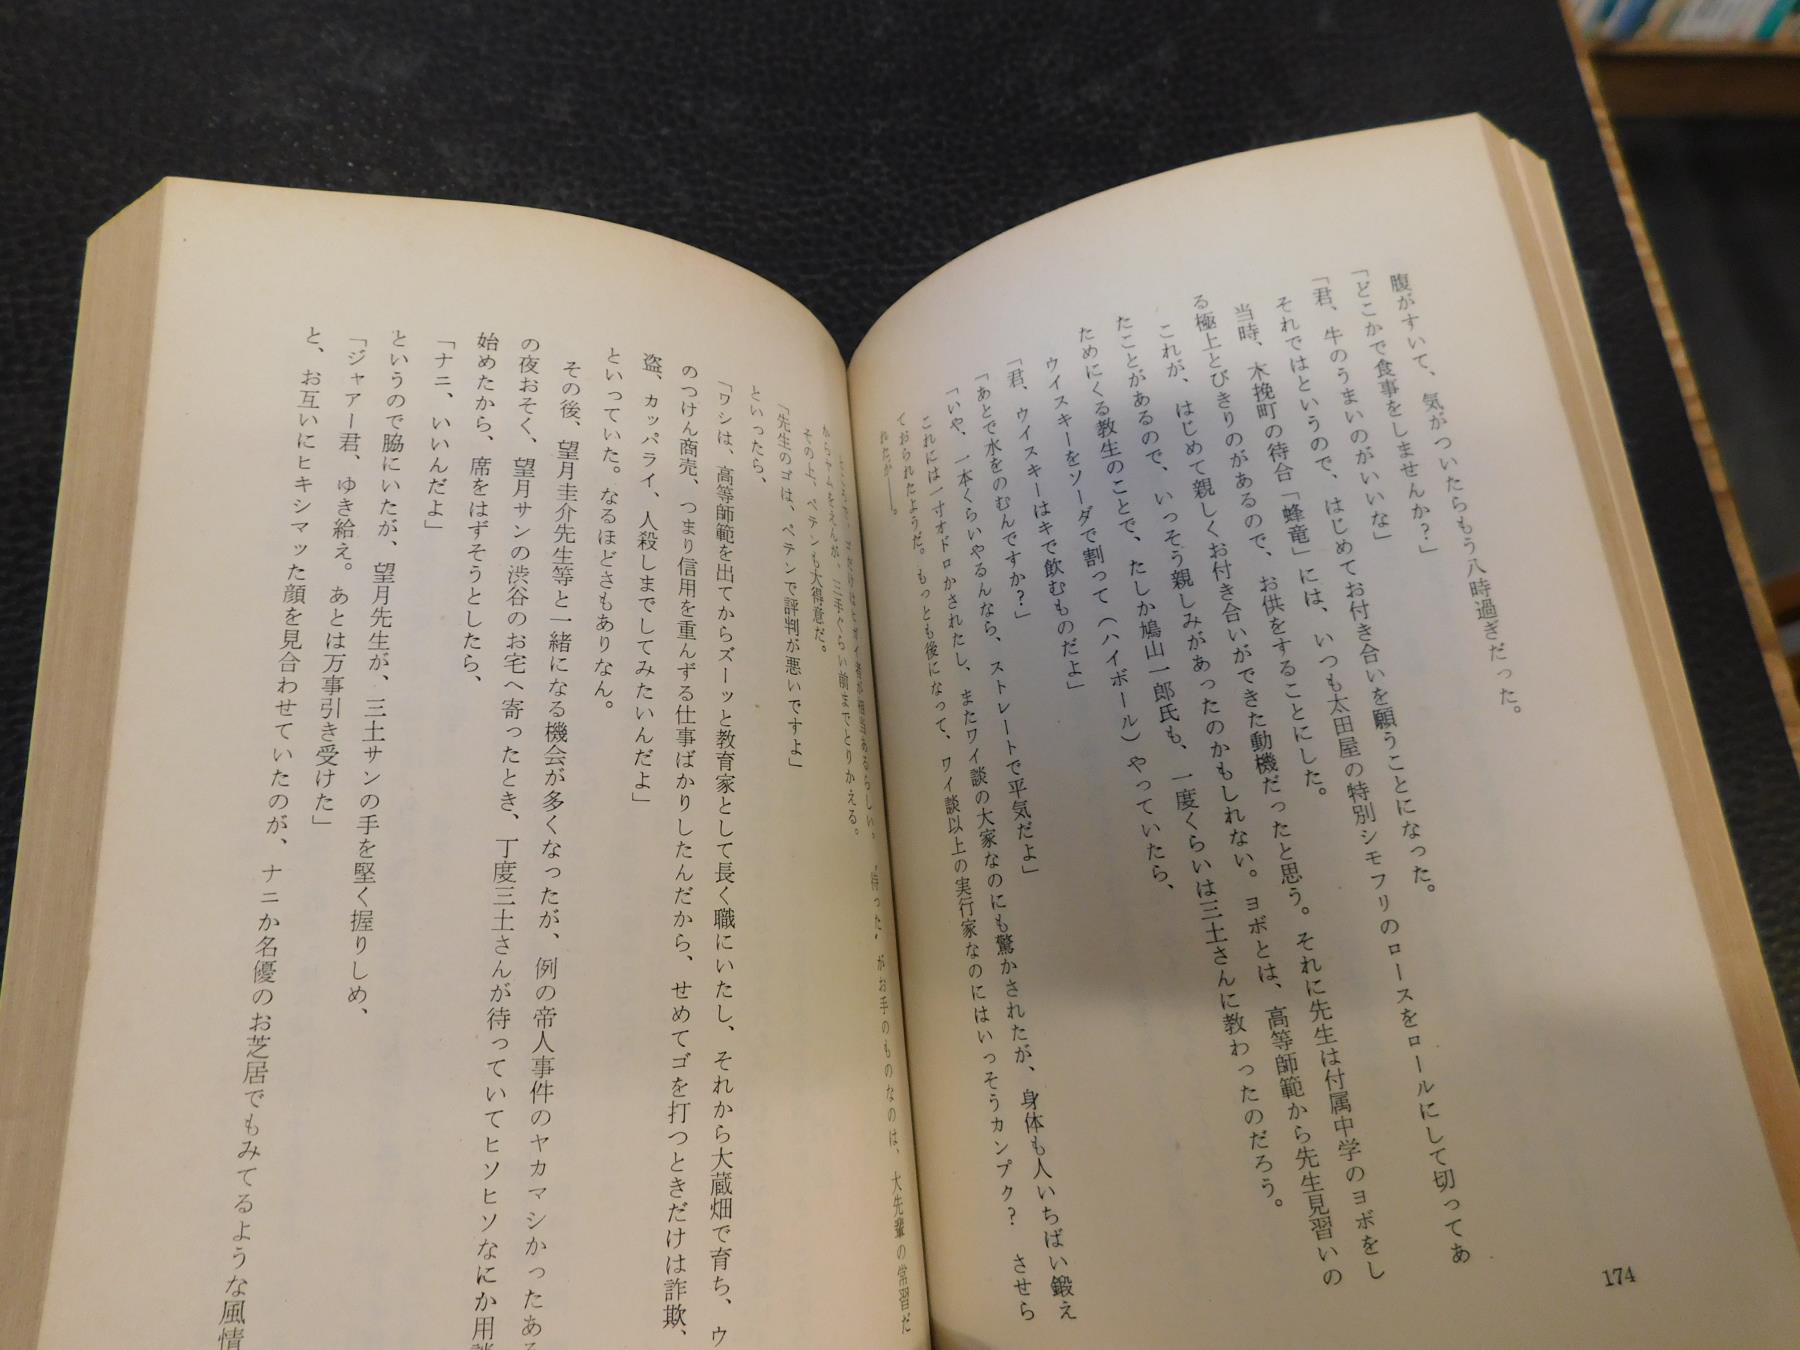 腹がすいて、気がついたらもう八時過ぎだった。
「どこかで食事をしませんか？」
「君、牛のうまいのがいいな」
それではというので、はじめてお付き合いを願うことになった。
当時、木挽町の待合「蜂竜」には、いつも太田屋の特別シモフリのロースをロールにして切ってあ
る極上とびきりのがあるので、お供をすることにした。
これが、はじめて親しくお付き合いができた動機だったと思う。それに先生は付属中学のヨボをし
たことがあるので、いっそう親しみがあったのかもしれない。ヨボとは、高等師範から先生見習いの
ためにくる教生のことで、たしか鳩山一郎氏も、一度くらいは三土さんに教わったのだろう。
ウイスキーをソーダで割って（ハイボール）やっていたら、
「君、ウイスキーはキで飲むものだよ」
「あとで水をのむんですか？」
「いや、一本くらいやるんなら、ストレートで平気だよ」
これには一寸オドロかされたし、またワイ談の大家なのにも驚かされたが、身体も人いちばい鍛え
ておられたようだ。もっとも後になって、ワイ談以上の実行家なのにはいっそうカンプク？　させら
れたが――。
174
がお手のものなのは、大先輩の常習だ
からヤムをえんが、三手ぐらい前までとりかえる。
その上、ペテンも大得意だ。
「先生のゴは、ペテンで評判が悪いですよ」
といったら、
「ワシは、高等師範を出てからズーッと教育家として長く職にいたし、それから大蔵畑で育ち、ウ
のつけん商売、つまり信用を重んずる仕事ばかりしたんだから、せめてゴを打つときだけは詐欺、
盗、カッパライ、人殺しまでしてみたいんだよ」
といっていた。なるほどさもありなん。
その後、望月圭介先生等と一緒になる機会が多くなったが、例の帝人事件のヤカマシかったある
の夜おそく、望月サンの渋谷のお宅へ寄ったとき、丁度三土さんが待っていてヒソヒソなにか用談
始めたから、席をはずそうとしたら、
「ナニ、いいんだよ」
というので脇にいたが、望月先生が、三土サンの手を堅く握りしめ、
「ジャアー君、ゆき給え。あとは万事引き受けた」
と、お互いにヒキシマッた顔を見合わせていたのが、ナニか名優のお芝居でもみてるような風情